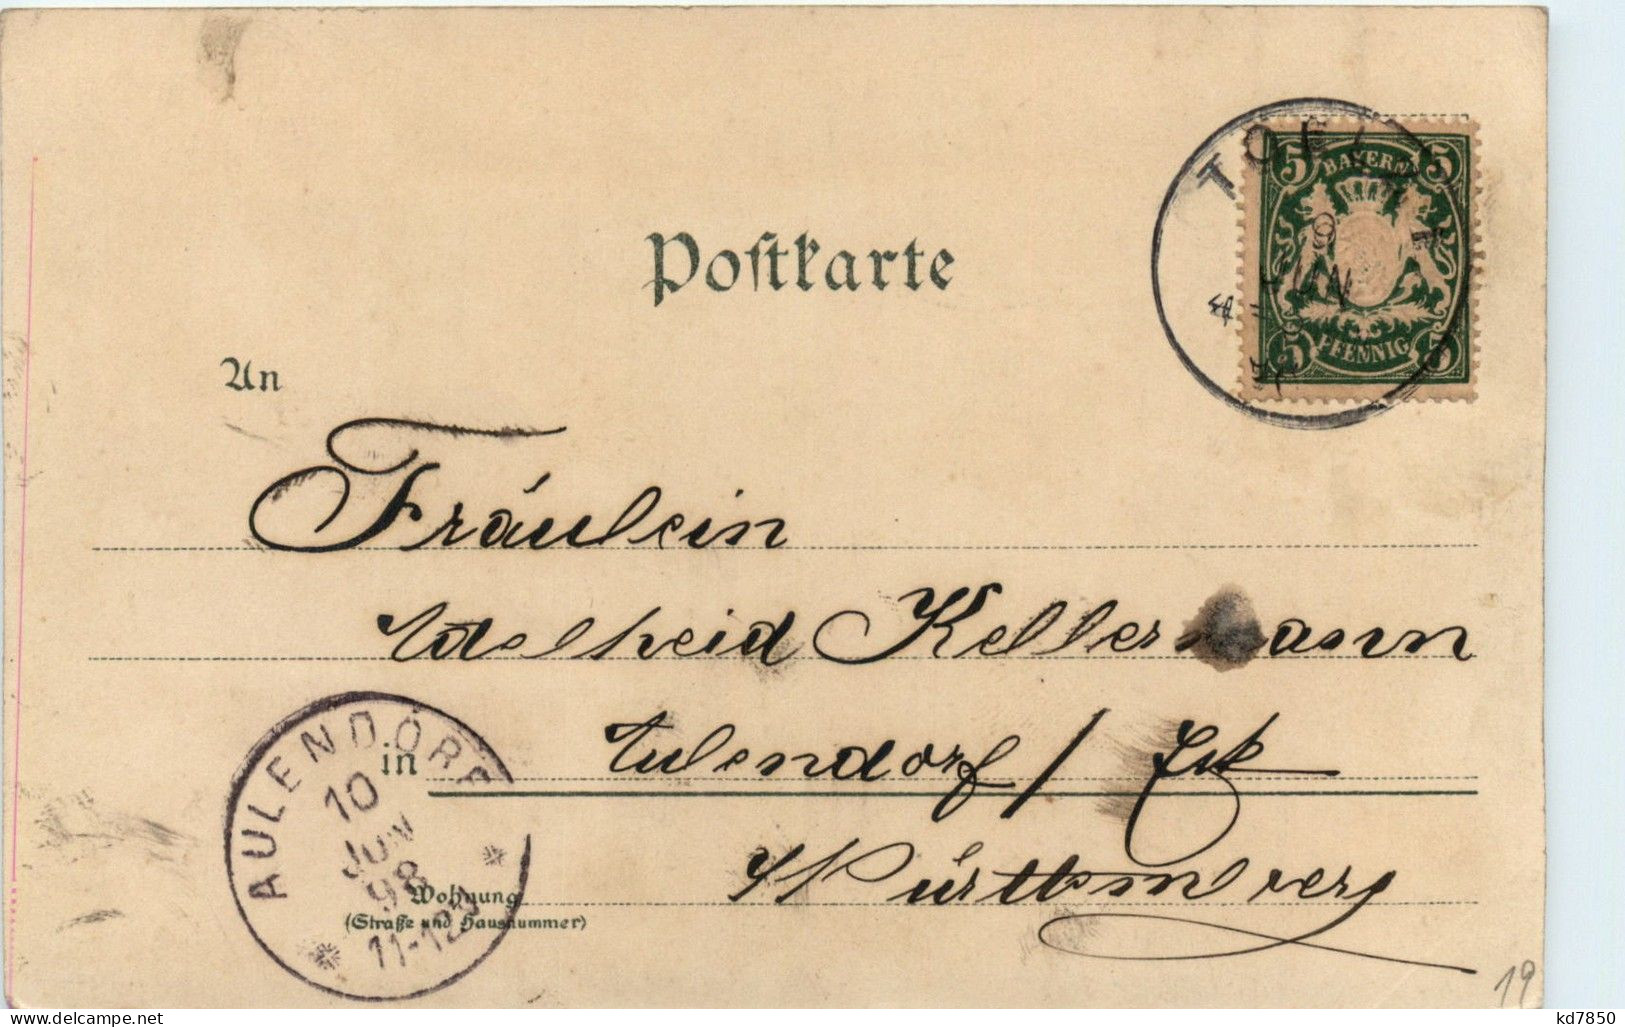 TOELZ
9
JUN
BAYERN
5 5
PFENNIG
5 5
Postkarte
An
Fräulein
Adelheid Kellermann
in Aulendorf /
Württemberg
Wohnung
(Straße und Hausnummer)
AULENDORF
10
JUN
98
11-12
19
kd7850